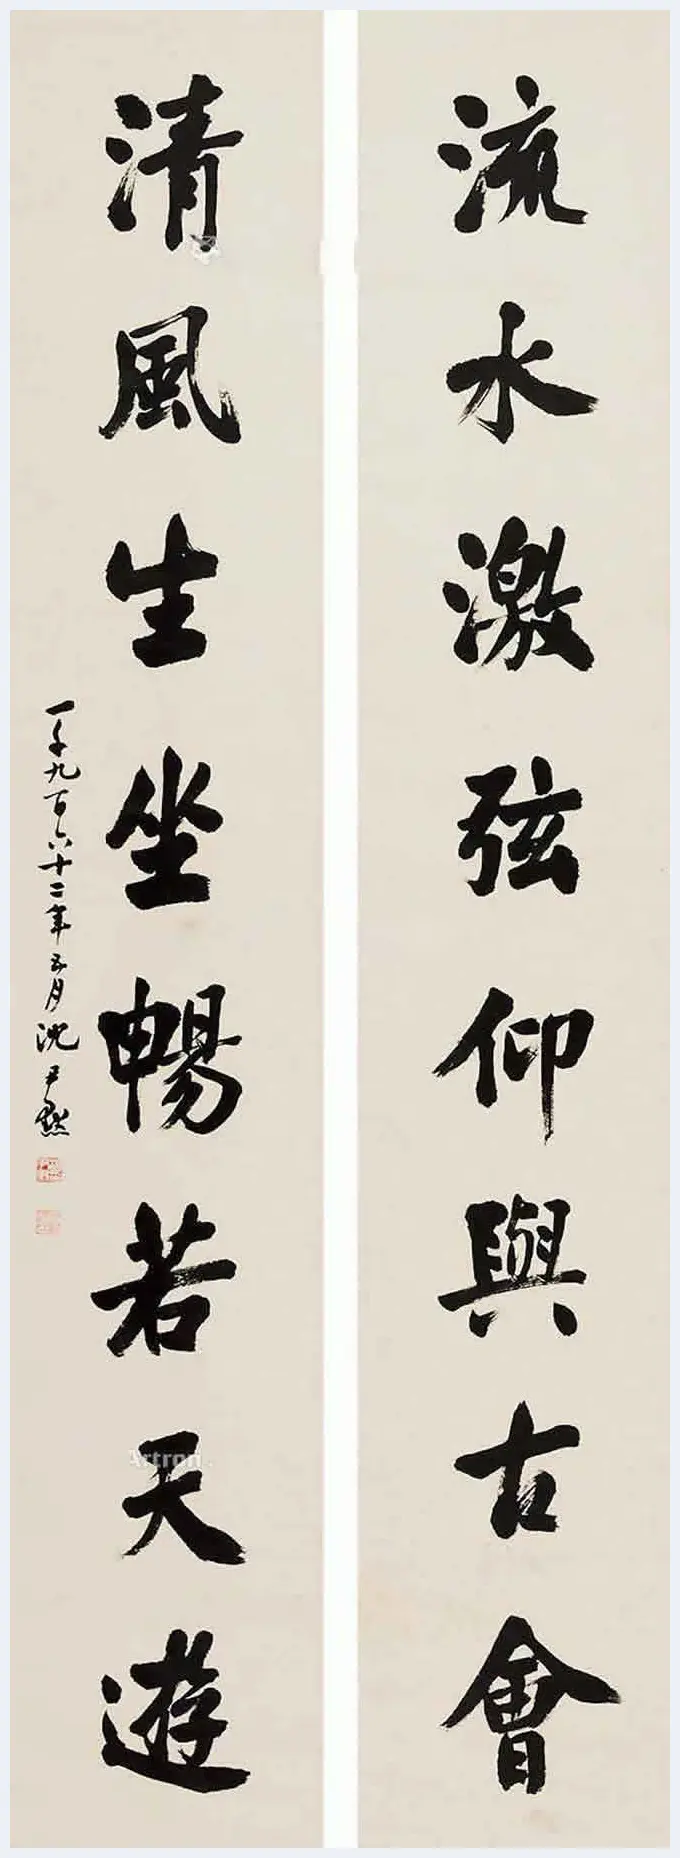 流水激弦仰與古會
清風生坐暢若天遊
一千九百六十二年五月沈尹默
Artron